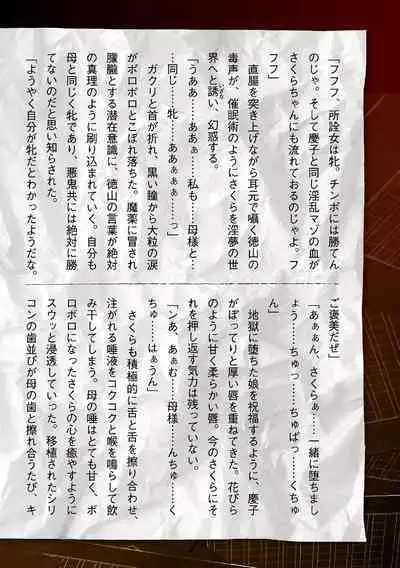 「フフフ、所詮女は牝。チンポには勝てん
のじゃ。そして慶子と同じ淫乱マゾの血が
さくらちゃんにも流れておるのじゃよ。フ
フフ」
直腸を突き上げながら耳元で囁く徳山の
毒声が、催眠術のようにさくらを淫夢の世
界へと誘い、幻惑する。
「うああ……ああぁ……私も……母様と…
…同じ……牝……ああぁぁぁ……っ」
ガクリと首が折れ、黒い瞳から大粒の涙
がボロボロとこぼれ落ちた。魔薬に冒され
朦朧とする潜在意識に、徳山の言葉が絶対
の真理のように刷り込まれていく。自分も
母と同じく牝であり、悪鬼共には絶対に勝
てないのだと思い知らされた。
「ようやく自分が牝だとわかったようだな。
ご褒美だぜ」
「あぁぁん、さくらぁ……一緒に堕ちまし
ょう……ちゅっ……ちゅぱっ……くちゅ
ん」
地獄に堕ちた娘を祝福するように、慶子
がぽってりと厚い唇を重ねてきた。花びら
のように甘く柔らかい唇。今のさくらにそ
れを押し返す気力は残っていない。
「ンあ、あぁむ……母様……んちゅ……く
ちゅ……はぁうん」
さくらも積極的に舌と舌を擦り合わせ、
注がれる唾液をコクコクと喉を鳴らして飲
み干してしまう。母の唾はとても甘く、ボ
ロボロになったさくらの心を癒やすように
スウッと浸透していった。移植されたシリ
コンの歯並びが母の歯と擦れ合うたび、キ